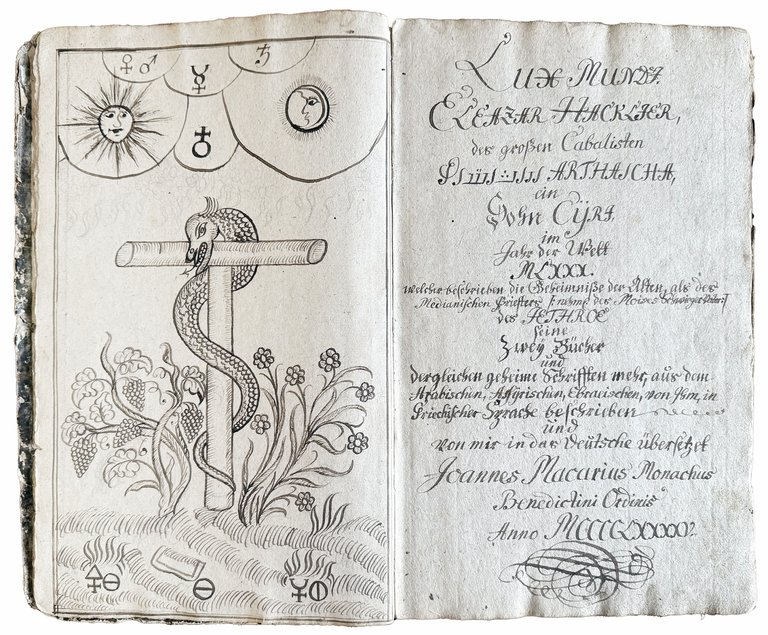 ♀ ♂ ☿ ♄
♁
LUX MUNDI.
ELEAZAR HACKLIER,
des großen Cabalisten
ARTHASCHA,
ein
Sohn CÿRI,
im
Jahr der Welt
MLXXX.
welcher beschrieben die Geheimniße der Alten, als des
Medianischen Priesters des Moises
des JETHROE
seine
Zweÿ Bücher
und
dergleichen geheime Schrifften mehr, aus dem
Arabischen, Assyrischen, Ebraeischen, von Ihm, in
Griechischer Sprache beschrieben
und
von mir in das Deutsche übersetzet
Joannes Macarius Monachus
Benedictini Ordinis
Anno